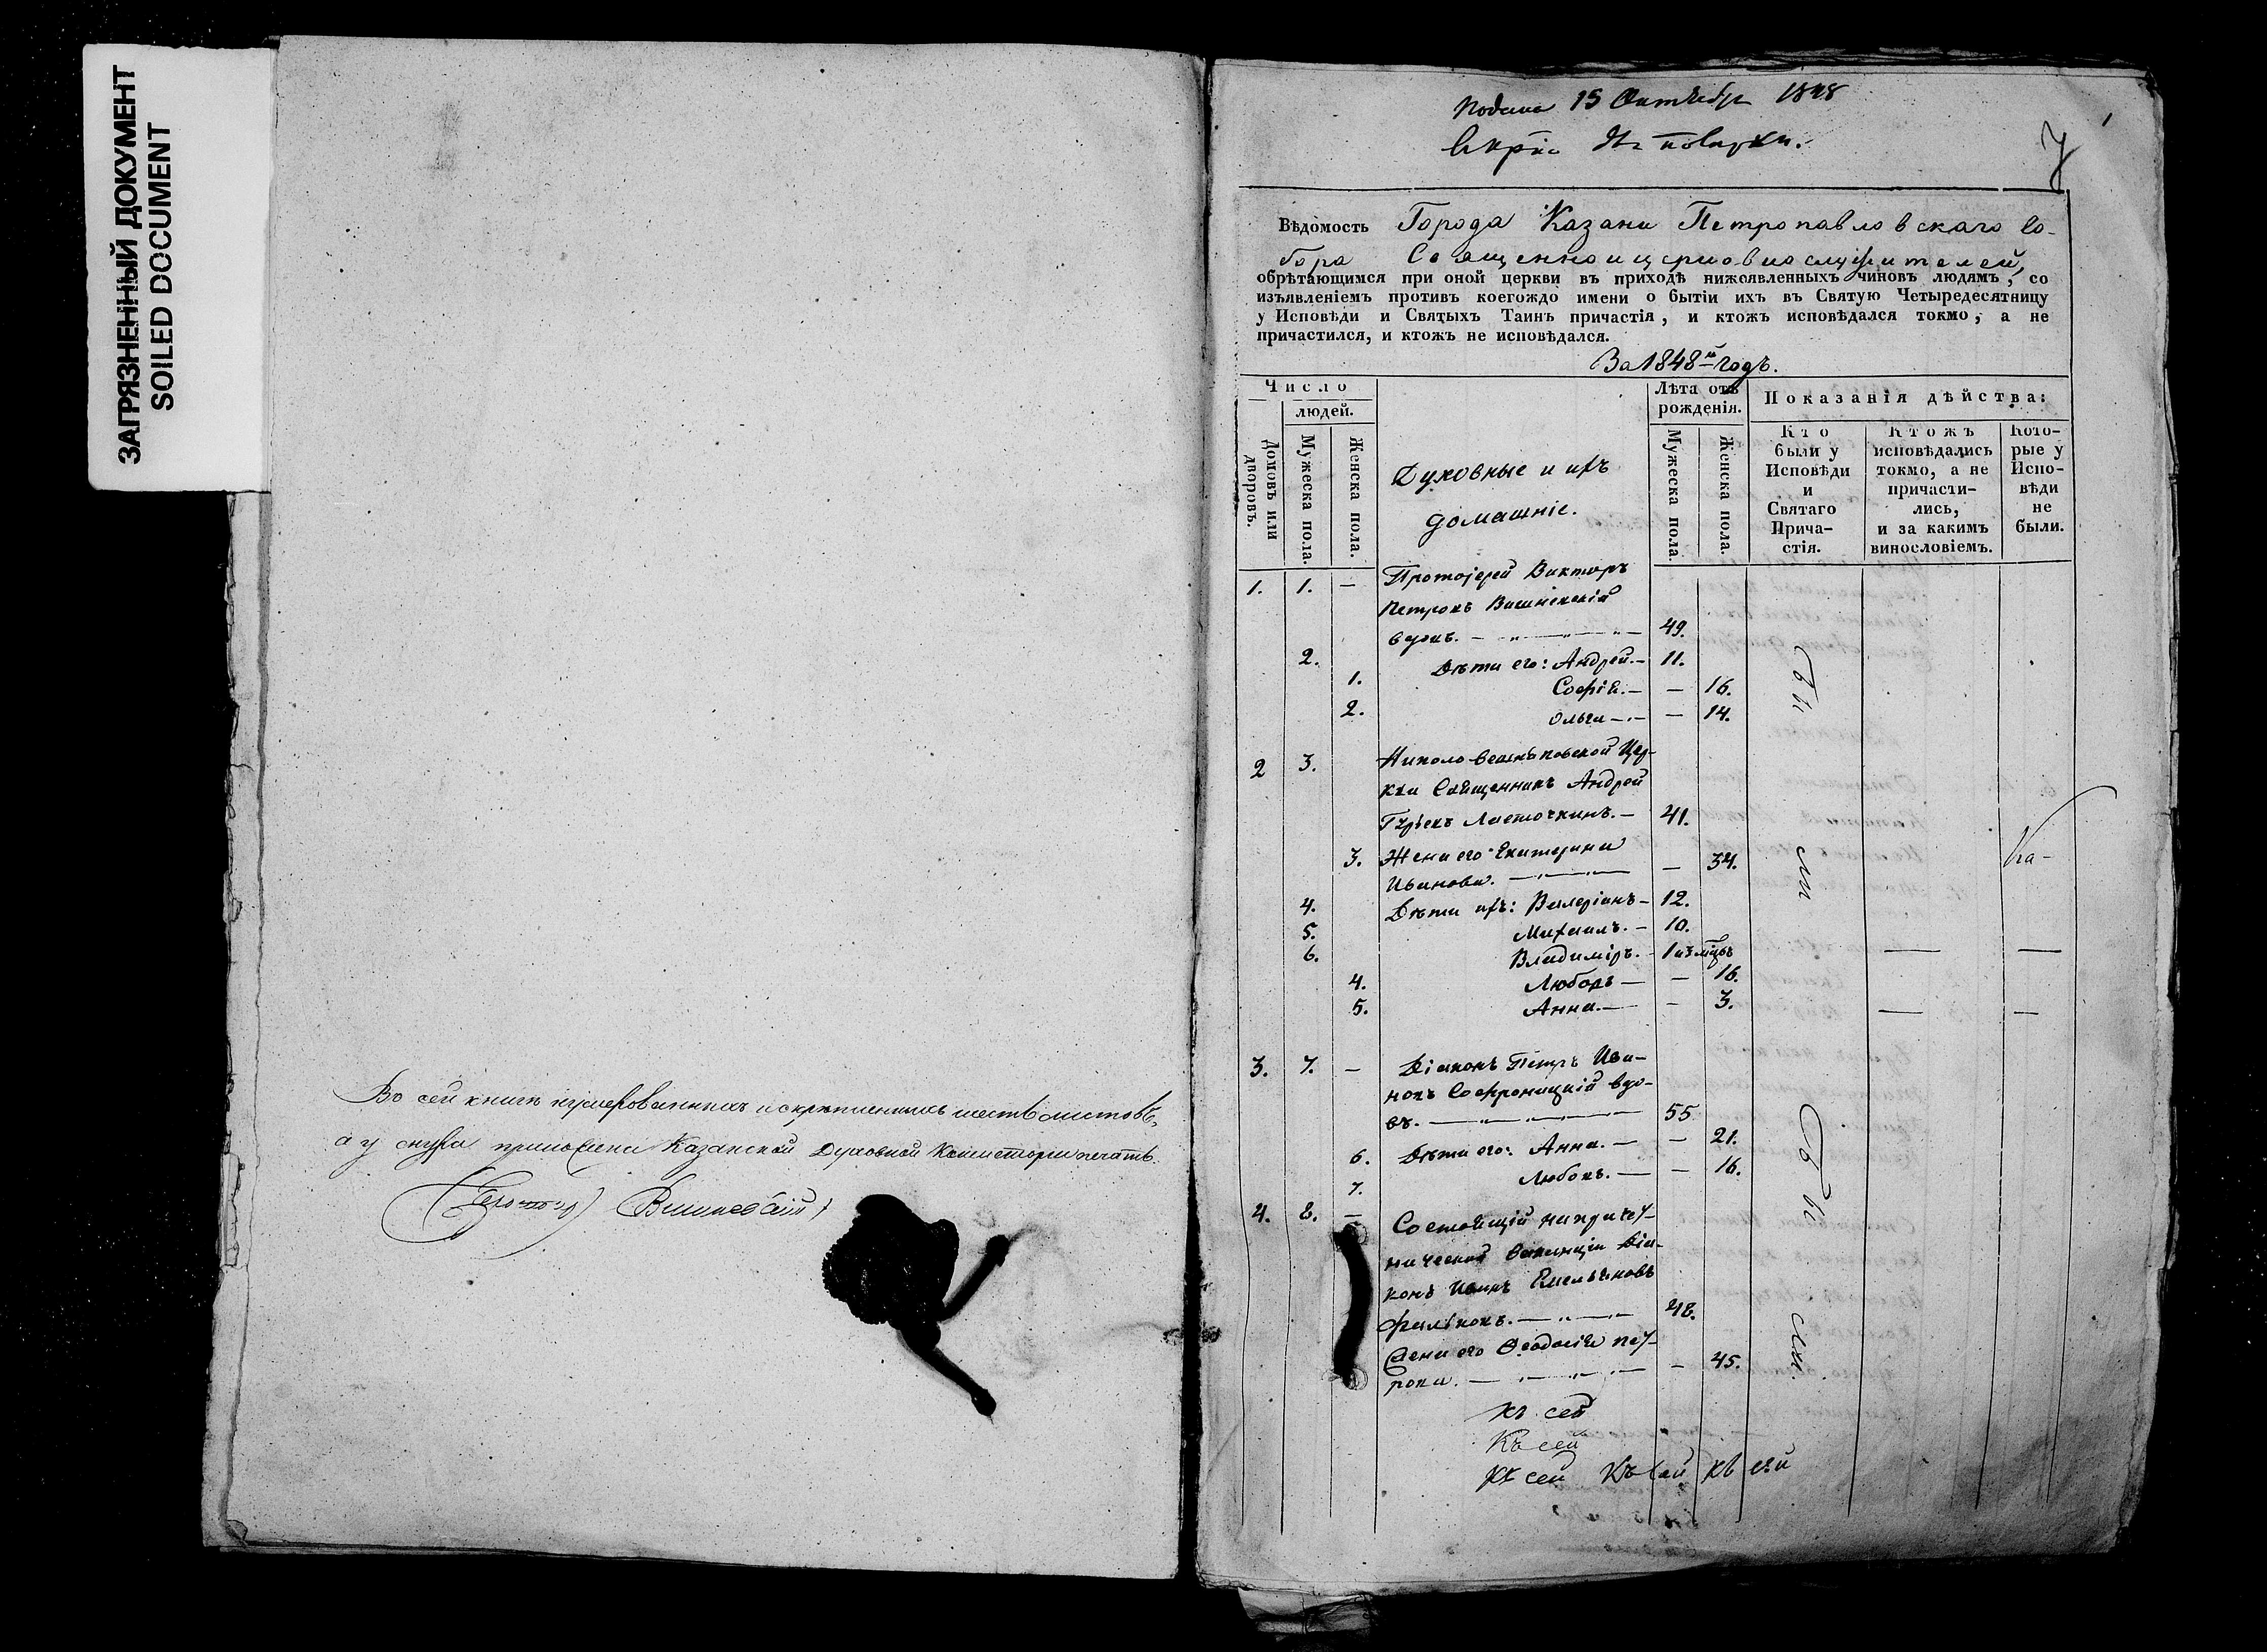 ЗАГРЯЗНЕННЫЙ ДОКУМЕНТ
SOILED DOCUMENT
Во сей книге нумерованныхъ и скрепленныхъ шесть листовъ,
а у снура приложена Казанской Духовной Консисторіи печать.
Вишневскій
Подана 15 Октября 1848
1
Вѣдомость Города Казани Петропавловскаго Со-
бора Священноицерковнослужителей,
обрѣтающимся при оной церкви въ приходѣ нижеявленныхъ чиновъ людямъ, со
изъявленіемъ противъ коегождо имени о бытіи ихъ въ Святую Четыредесятницу
у Исповѣди и Святыхъ Таинъ причастія, и ктожъ исповѣдался токмо, а не
причастился, и ктожъ не исповѣдался.
За 1848й годъ.
Число
людей.
Домовъ или дворовъ.
Мужеска пола.
Женска пола.
Духовные и ихъ
домашніе.
Лѣта отъ
рожденія.
Мужеска пола.
Женска пола.
Показанія дѣйства:
Кто
были у
Исповѣди
и
Святаго
Прича-
стія.
Ктожъ
исповѣдались
токмо, а не
причасти-
лись,
и за какимъ
винословіемъ.
Кото-
рые у
Испо-
вѣди
не
были.
1. 1. — Протоіерей Викторъ
Петровъ Вишневскій
вдовъ. — 49.
2. Дѣти его: Андрей. — 11.
1. Софія. — — 16.
2. Ольга — — 14.
2 3. Николо Вешняковской Цер-
кви Священникъ Андрей
Гурьевъ Ласточкинъ. — 41.
3. Жена его Екатерина
Иванова. — — 34.
4. Дѣти ихъ: Валеріанъ — 12.
5. Михаилъ. — 10.
6. Владиміръ. — 1 и 3 мцовъ — —
4. Любовь — — 16.
5. Анна. — — 3. — —
3. 7. — Діаконъ Петръ Ива-
новъ Софроницкій вдо-
въ. — 55
6. Дѣти его: Анна. — — 21.
7. Любовь. — — 16.
4. 8. — Состоящій на причет-
нической ваканціи Діа-
конъ Иоаннъ Емельяновъ
— 48.
Жена его Феодосія Пет-
рова. — — 45.
Бы
ли
Бы
ли.
Ка-
Къ сей
Къ сей
Къ сей Къ сей къ сей